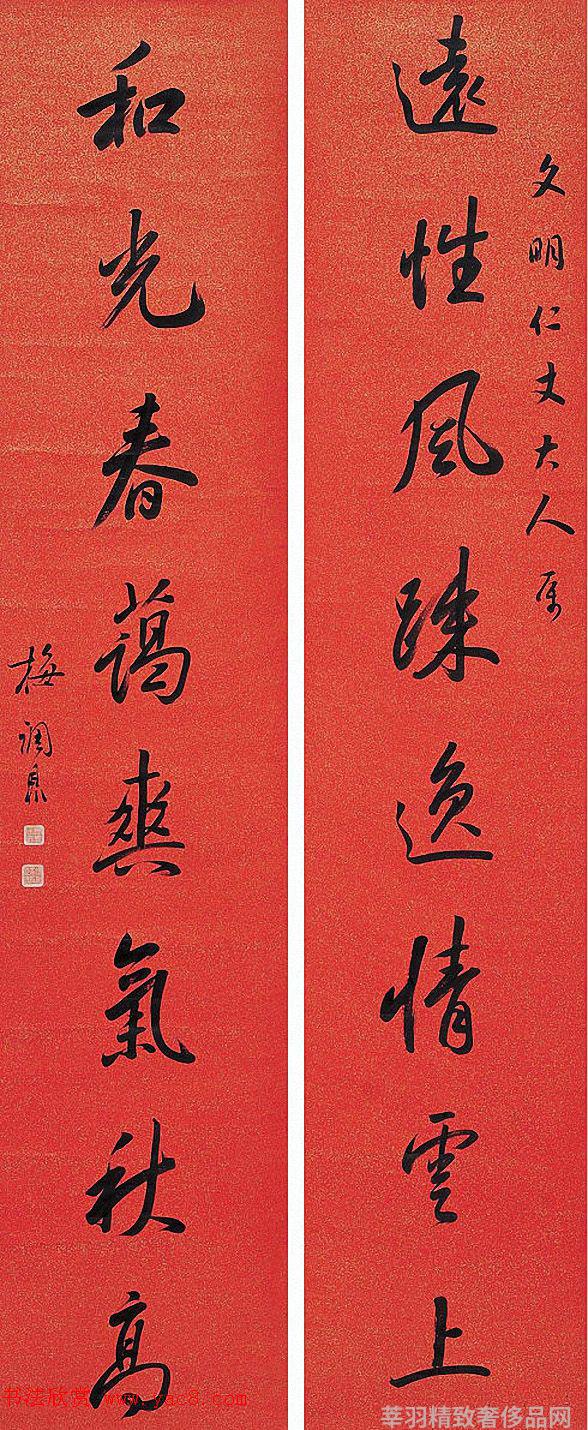 文明仁丈大人属
遠性風疎逸情雲上
和光春藹爽氣秋高
梅調鼎
书法欣赏 www.yac8.com
莘羽精致奢侈品网